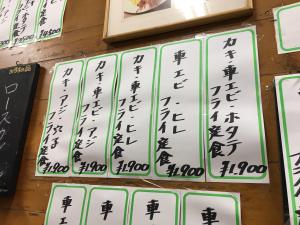 カキ・車エビ・ホタテ
フライ定食
¥1,900
車エビ・ヒレ
フライ定食
¥1,900
カキ・エビ・ヒレ
フライ定食
¥1,900
カキ・車エビ・アジ
フライ定食
¥1,900
カキ・アジ・穴子
フライ定食
¥1,900
ロースカツ
車
車
車
車エ